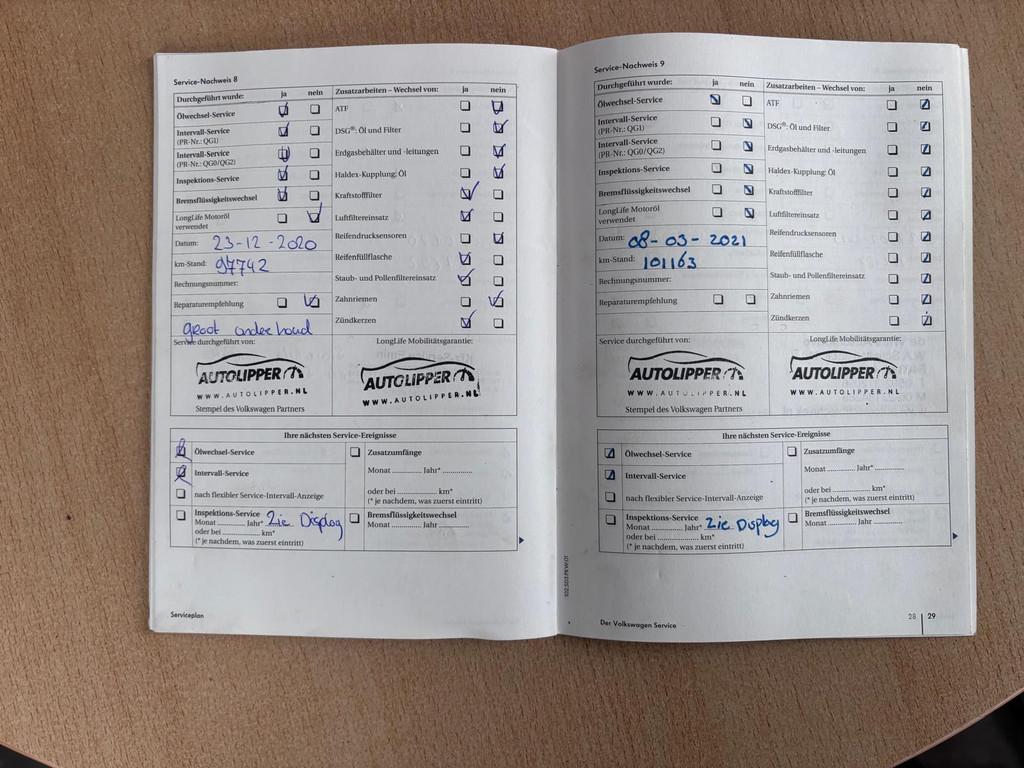 Service-Nachweis 8
Durchgeführt wurde: ja nein Zusatzarbeiten – Wechsel von: ja nein
Ölwechsel-Service ATF
Intervall-Service DSG®: Öl und Filter
(PR-Nr.: QG1)
Intervall-Service Erdgasbehälter und -leitungen
(PR-Nr.: QG0/QG2)
Inspektions-Service Haldex-Kupplung: Öl
Bremsflüssigkeitswechsel Kraftstofffilter
LongLife Motoröl Luftfiltereinsatz
verwendet
Datum: 23-12-2020 Reifendrucksensoren
km-Stand: 97742 Reifenfüllflasche
Rechnungsnummer: Staub- und Pollenfiltereinsatz
Reparaturempfehlung Zahnriemen
groot onderhoud Zündkerzen
Service durchgeführt von: LongLife Mobilitätsgarantie:
AUTOLIPPER AUTOLIPPER
WWW.AUTOLIPPER.NL WWW.AUTOLIPPER.NL
Stempel des Volkswagen Partners
Ihre nächsten Service-Ereignisse
Ölwechsel-Service Zusatzumfänge
Intervall-Service Monat ............ Jahr* ............
nach flexibler Service-Intervall-Anzeige oder bei .................... km*
(* je nachdem, was zuerst eintritt)
Inspektions-Service Zie Display Bremsflüssigkeitswechsel
Monat .......... Jahr* Monat .......... Jahr ..........
oder bei ............... km*
(* je nachdem, was zuerst eintritt)
Serviceplan
Service-Nachweis 9
Durchgeführt wurde: ja nein Zusatzarbeiten – Wechsel von: ja nein
Ölwechsel-Service ATF
Intervall-Service DSG®: Öl und Filter
(PR-Nr.: QG1)
Intervall-Service Erdgasbehälter und -leitungen
(PR-Nr.: QG0/QG2)
Inspektions-Service Haldex-Kupplung: Öl
Bremsflüssigkeitswechsel Kraftstofffilter
LongLife Motoröl Luftfiltereinsatz
verwendet
Datum: 08-03-2021 Reifendrucksensoren
km-Stand: 101163 Reifenfüllflasche
Rechnungsnummer: Staub- und Pollenfiltereinsatz
Reparaturempfehlung Zahnriemen
Zündkerzen
Service durchgeführt von: LongLife Mobilitätsgarantie:
AUTOLIPPER AUTOLIPPER
WWW.AUTOLIPPER.NL WWW.AUTOLIPPER.NL
Stempel des Volkswagen Partners
Ihre nächsten Service-Ereignisse
Ölwechsel-Service Zusatzumfänge
Intervall-Service Monat ............ Jahr* ............
nach flexibler Service-Intervall-Anzeige oder bei .................... km*
(* je nachdem, was zuerst eintritt)
Inspektions-Service Zie Display Bremsflüssigkeitswechsel
Monat .......... Jahr* Monat .......... Jahr ..........
oder bei ............... km*
(* je nachdem, was zuerst eintritt)
Der Volkswagen Service 28 | 29